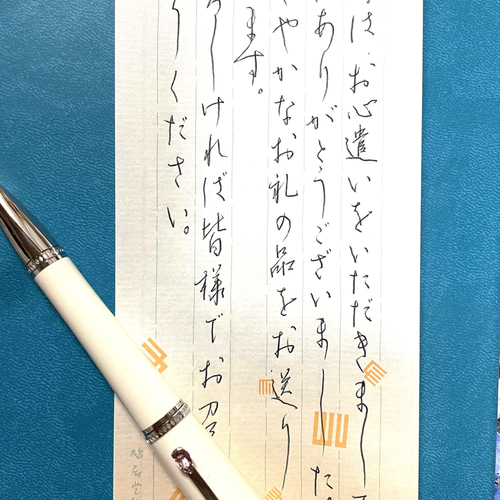 は、お心遣いをいただきまし
ありがとうございました。
やかなお礼の品をお送り
ます。
ければ皆様でお召
ください。
鳩居堂